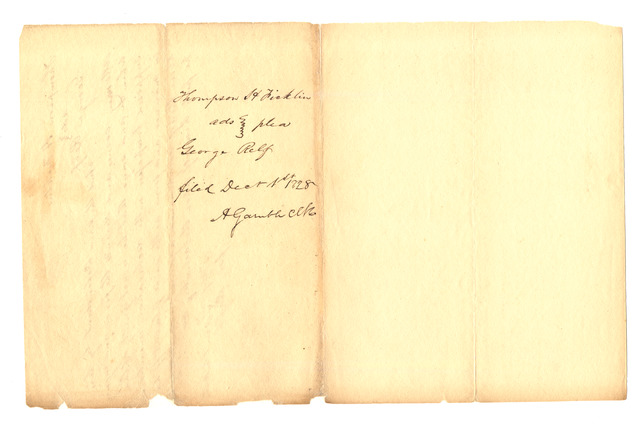 Thompson H Ficklin
ads } plea
George Relf
filed Dec 1st 1828
A Gamble Clk